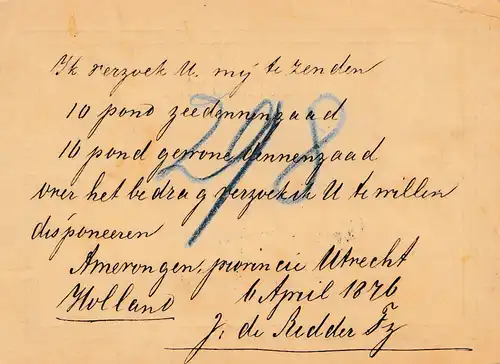 Ik verzoek U. mij te zenden
10 pond zeedennenzaad
10 pond gewone dennenzaad
over het bedrag verzoek ik U te willen
disponeeren
Amerongen, provincie Utrecht
Holland 6 April 1876
J: de Ridder Fz
298